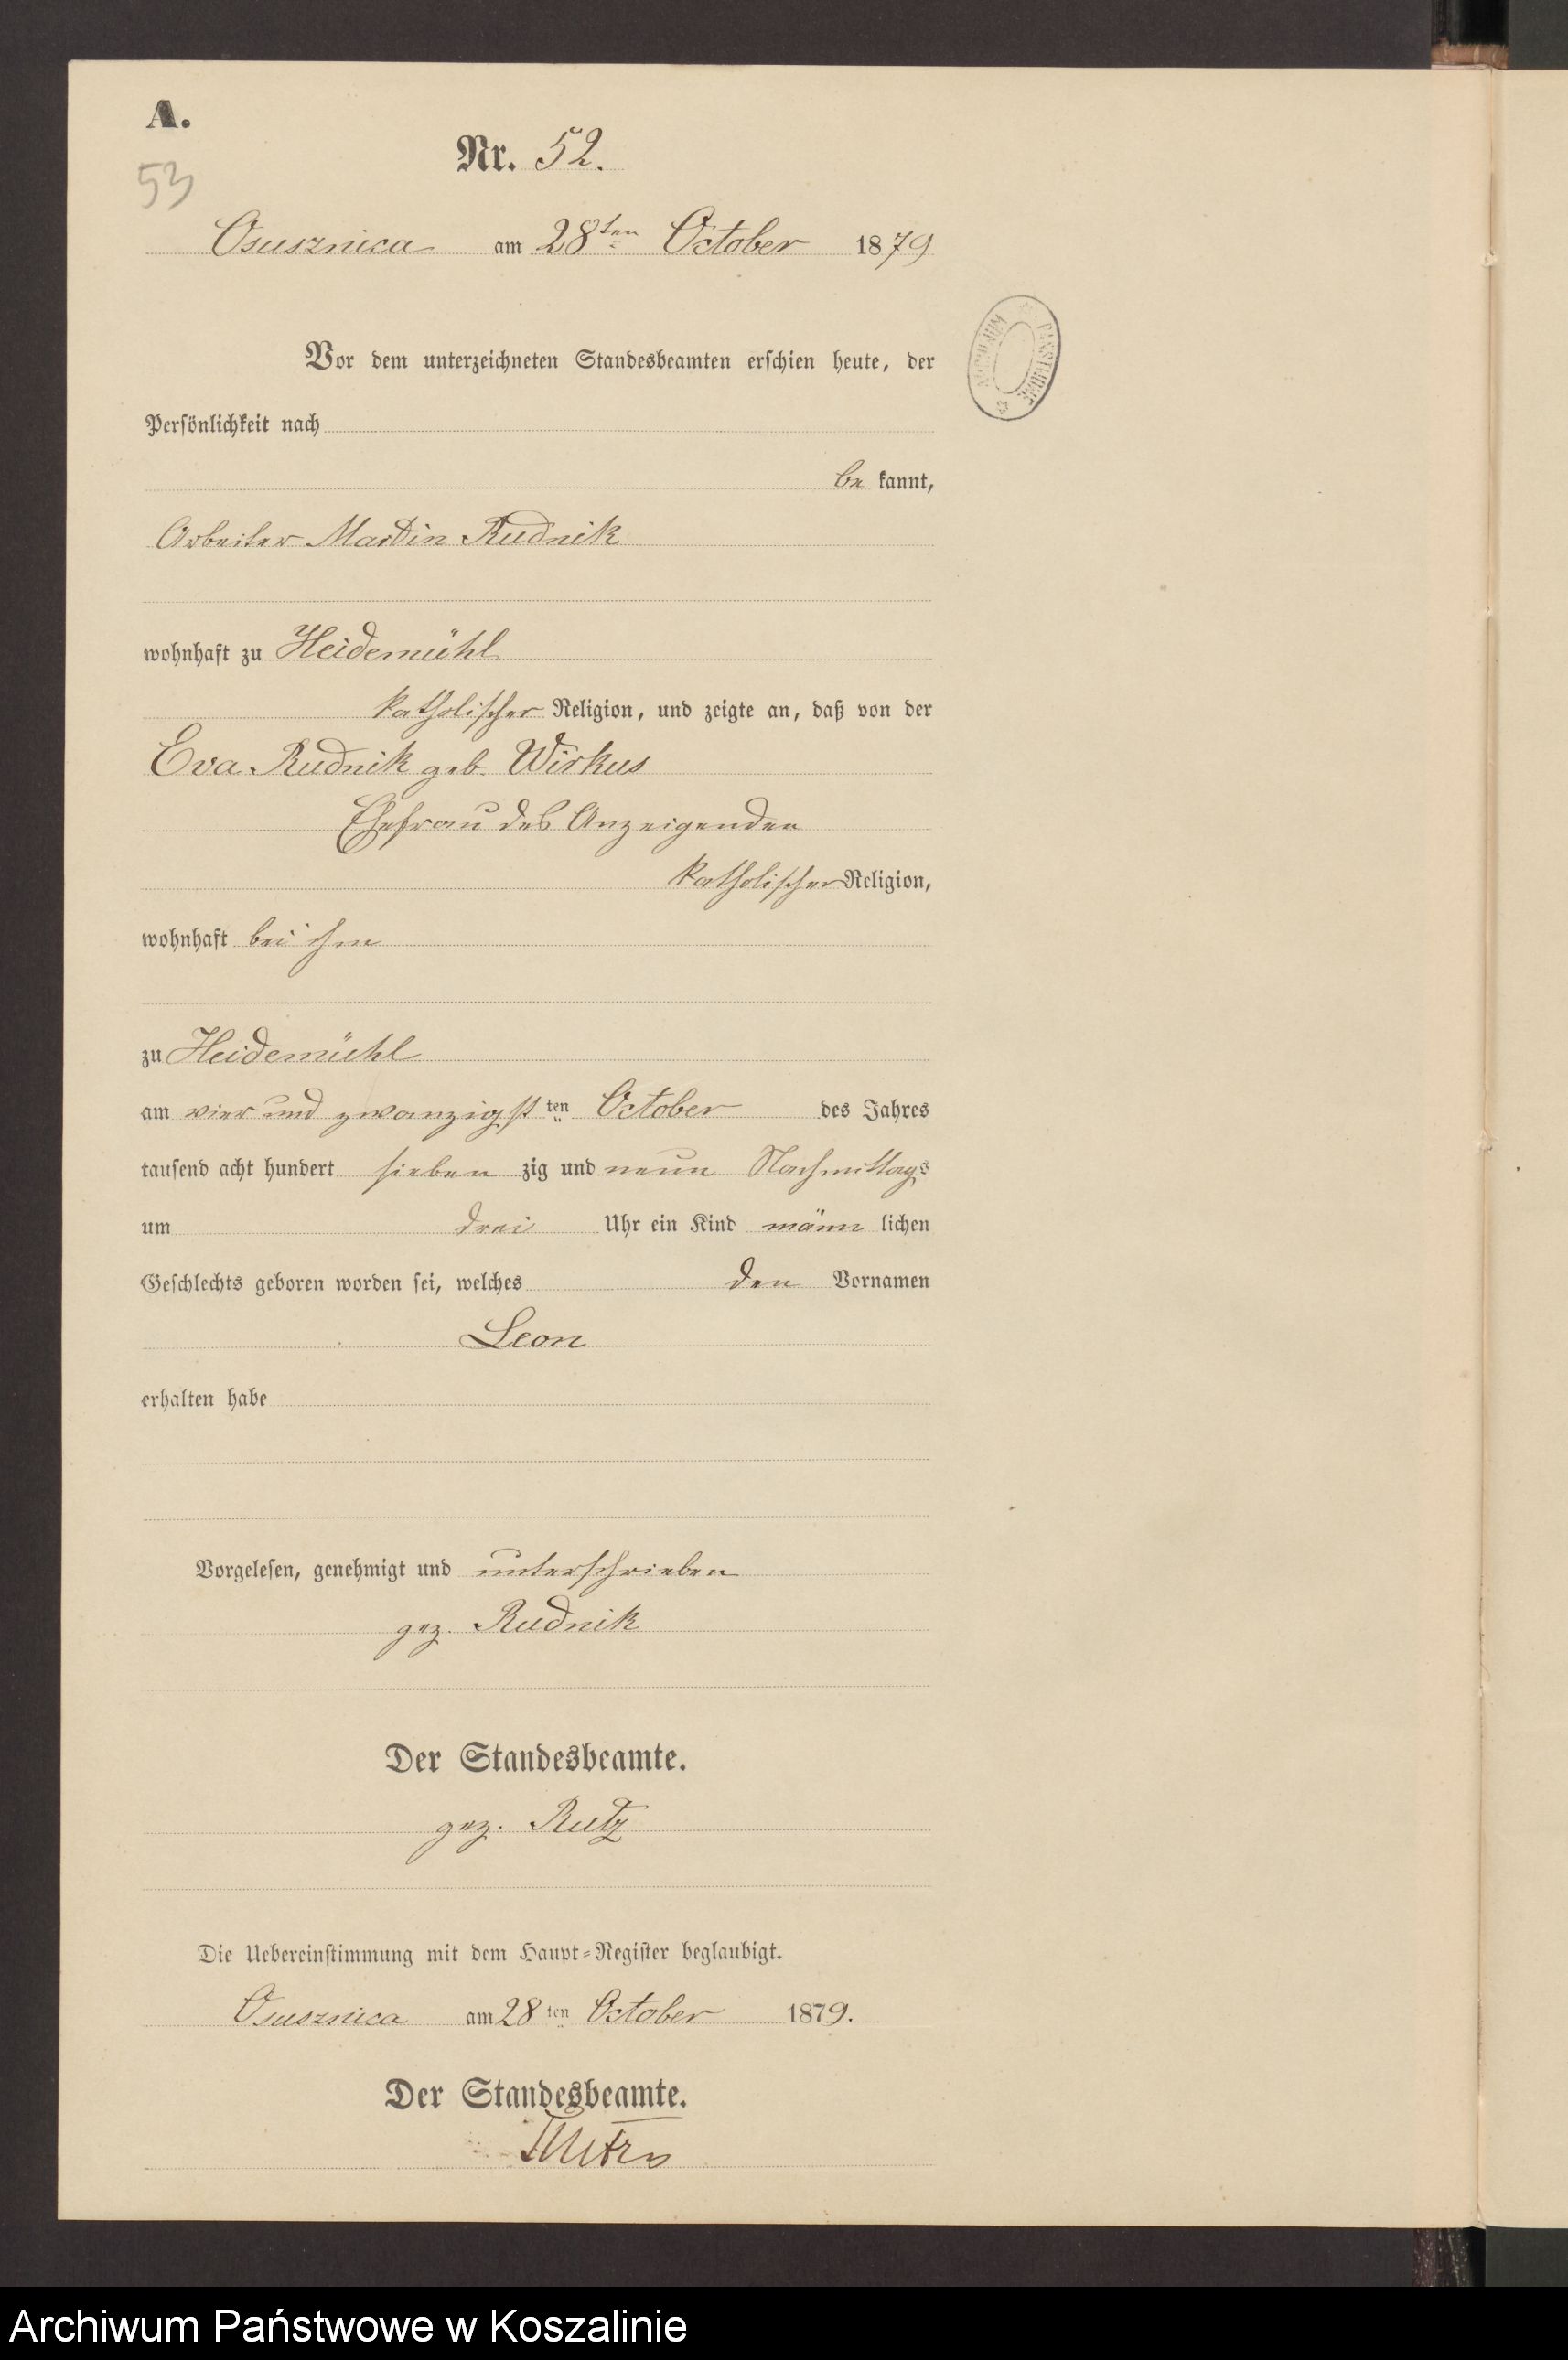 A.
53
Nr. 52.
Osusznica am 28ten October 1879
Vor dem unterzeichneten Standesbeamten erschien heute, der
Persönlichkeit nach
be kannt,
Arbeiter Martin Rudnik
wohnhaft zu Heidemühl
katholischer Religion, und zeigte an, daß von der
Eva Rudnik geb. Wirkus
Ehefrau des Anzeigenden
katholischer Religion,
wohnhaft bei ihm
zu Heidemühl
am vier und zwanzigsten October des Jahres
tausend acht hundert sieben zig und neun Nachmittags
um drei Uhr ein Kind männ lichen
Geschlechts geboren worden sei, welches den Vornamen
Leon
erhalten habe
Vorgelesen, genehmigt und unterschrieben
gez. Rudnik
Der Standesbeamte.
gez. Rutz
Die Uebereinstimmung mit dem Haupt-Register beglaubigt.
Osusznica am 28ten October 1879.
Der Standesbeamte.
Archiwum Państwowe w Koszalinie